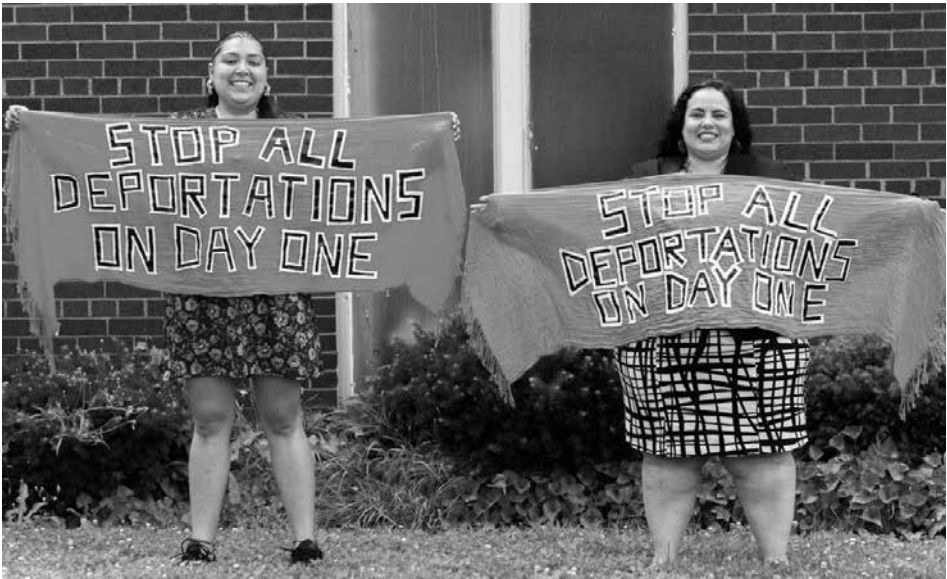 STOP ALL
DEPORTATIONS
ON DAY ONE
STOP ALL
DEPORTATIONS
ON DAY ONE